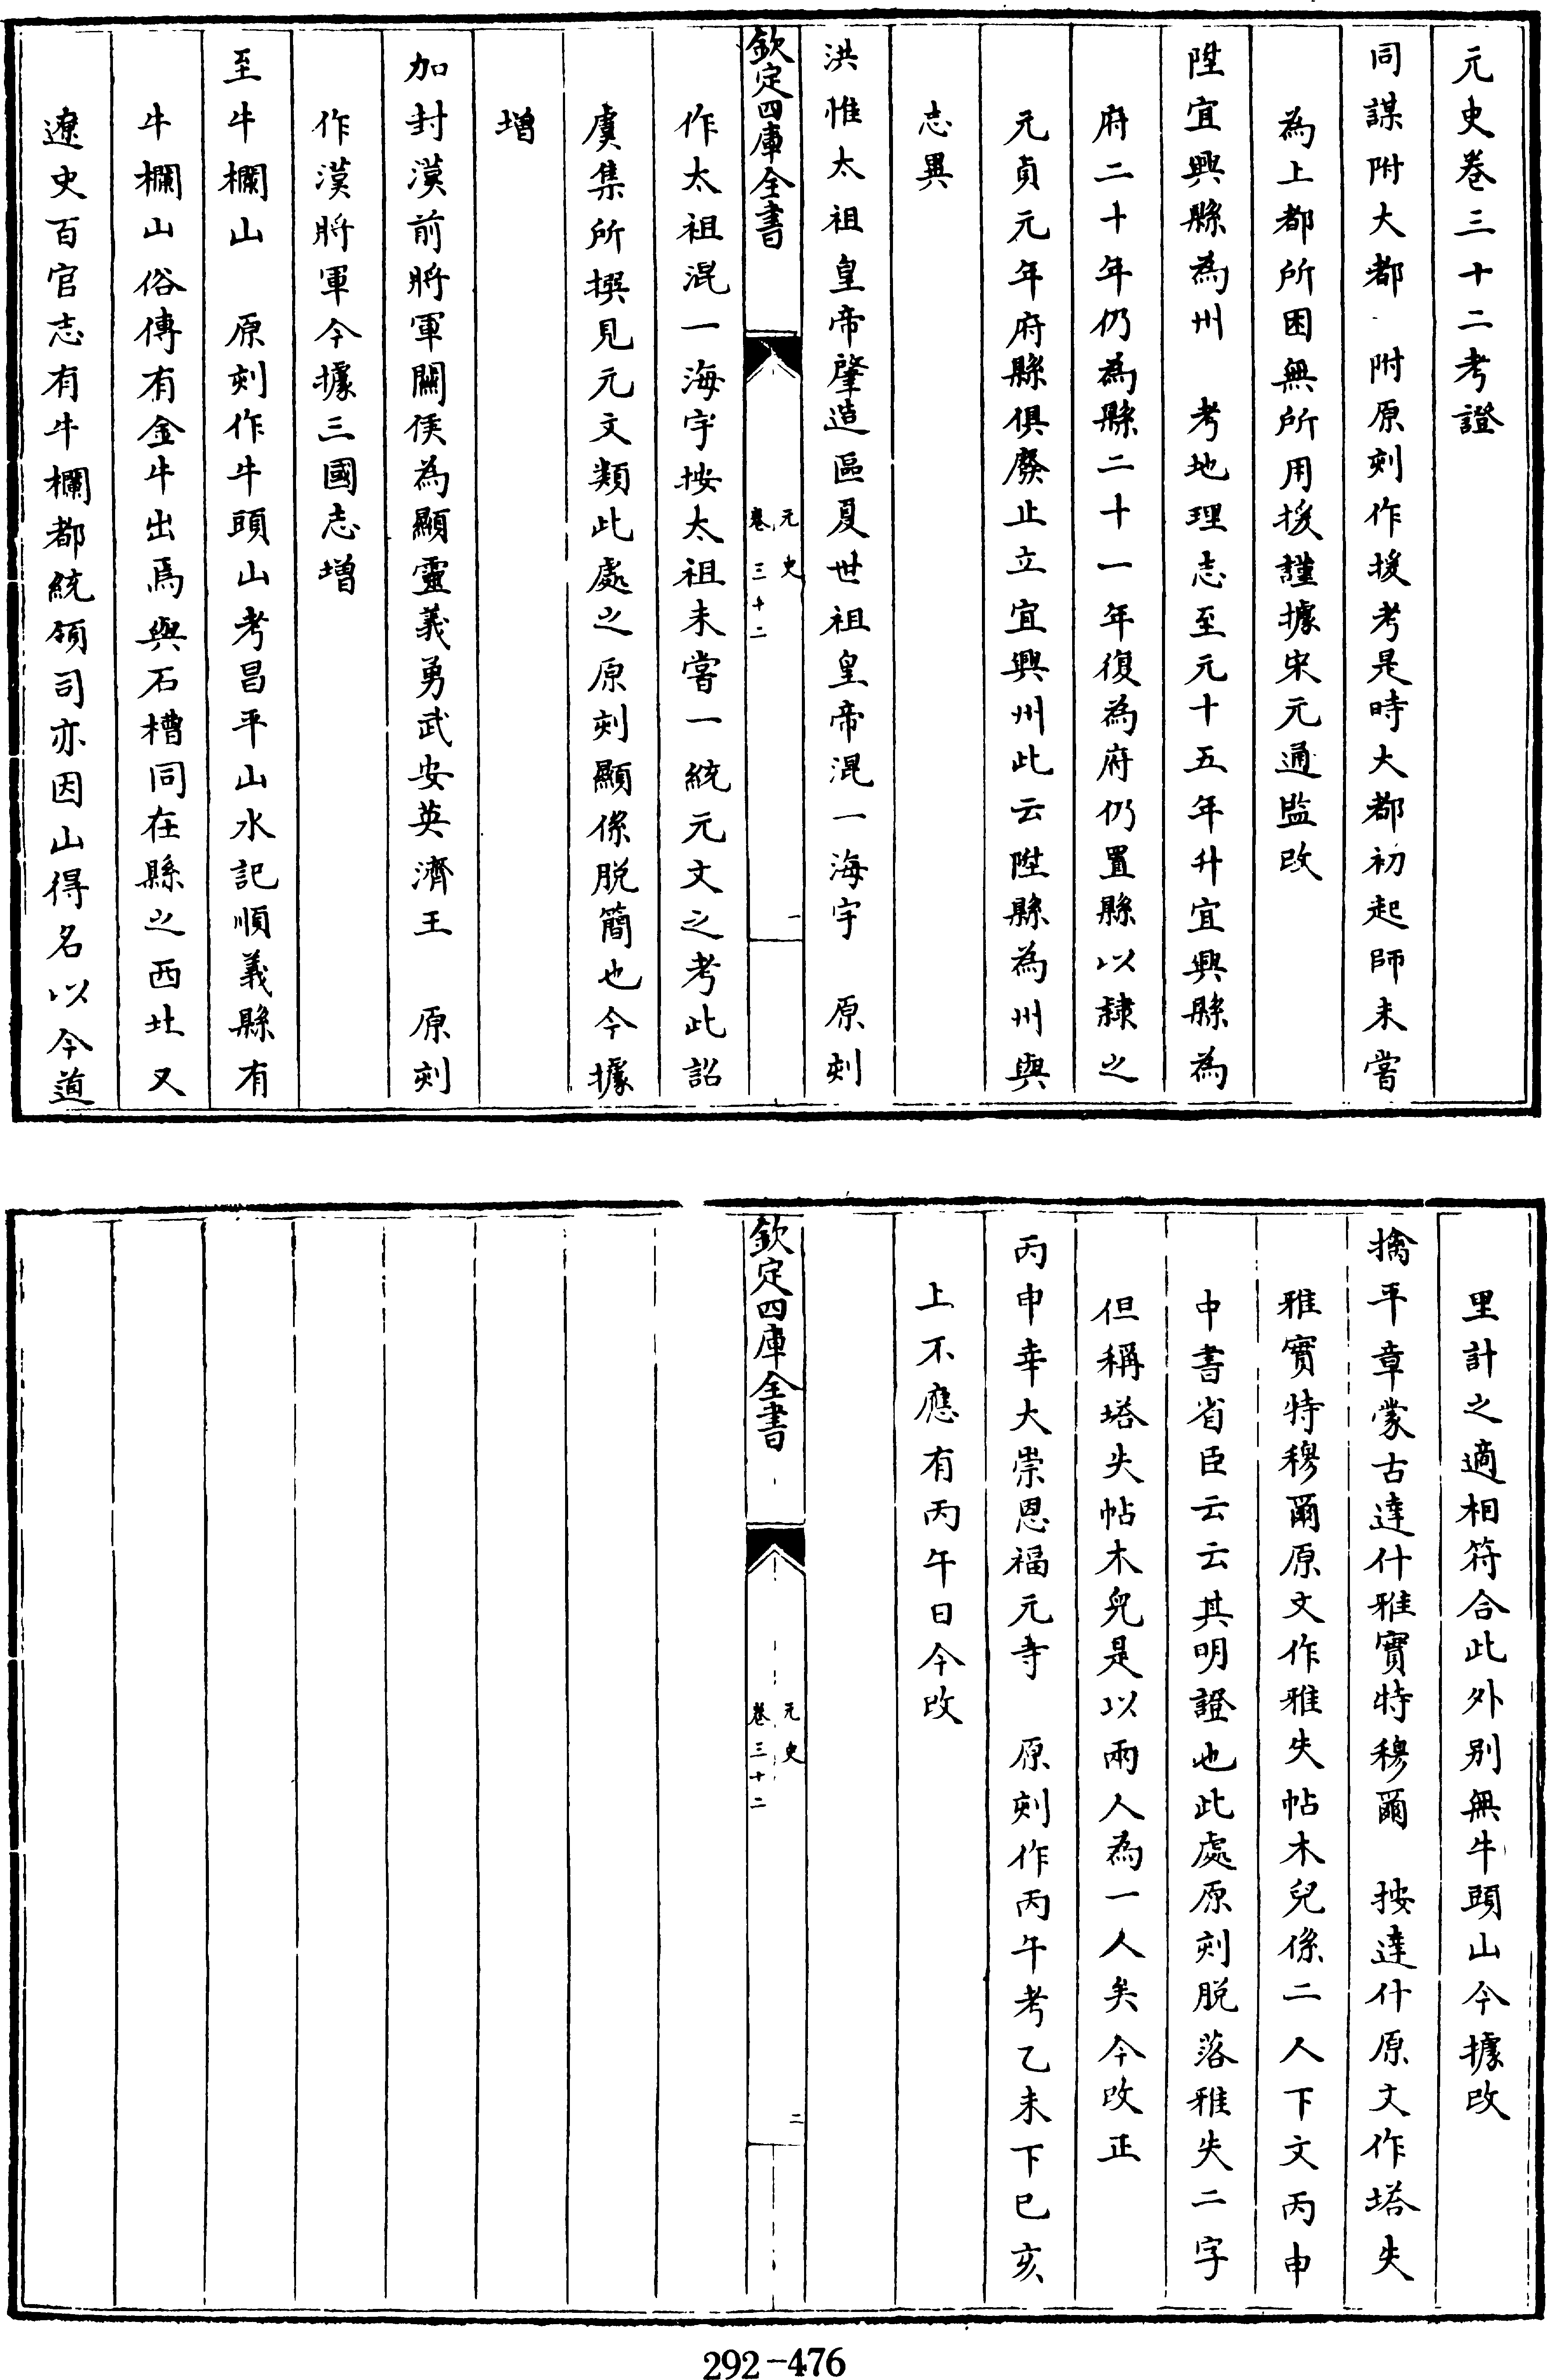 元史卷三十二考證
同謀附大都　附原刻作援考是時大都初起師未嘗
為上都所困無所用援謹據宋元通監改
陞宜興縣為州　考地理志至元十五年升宜興縣為
府二十年仍為縣二十一年復為府仍置縣以隸之
元貞元年府縣俱廢止立宜興州此云陞縣為州與
志異
洪惟太祖皇帝肇造區夏世祖皇帝混一海宇　原刻
欽定四庫全書
元史
卷三十二
一
作太祖混一海宇按太祖未嘗一統元文之考此詔
虞集所撰見元文類此處之原刻顯係脱簡也今據
增
加封漢前將軍關侯為顯靈義勇武安英濟王　原刻
作漢將軍今據三國志增
至牛欄山　原刻作牛頭山考昌平山水記順義縣有
牛欄山俗傳有金牛出焉與石槽同在縣之西北又
遼史百官志有牛欄都統領司亦因山得名以今道
里計之適相符合此外别無牛頭山今據改
擒平章蒙古達什雅實特穆爾　按達什原文作塔失
雅實特穆爾原文作雅失帖木兒係二人下文丙申
中書省臣云云其明證也此處原刻脱落雅失二字
但稱塔失帖木兒是以兩人為一人矣今改正
丙申幸大崇恩福元寺　原刻作丙午考乙未下已亥
上不應有丙午日今改
欽定四庫全書
元史
卷三十二
二
292-476